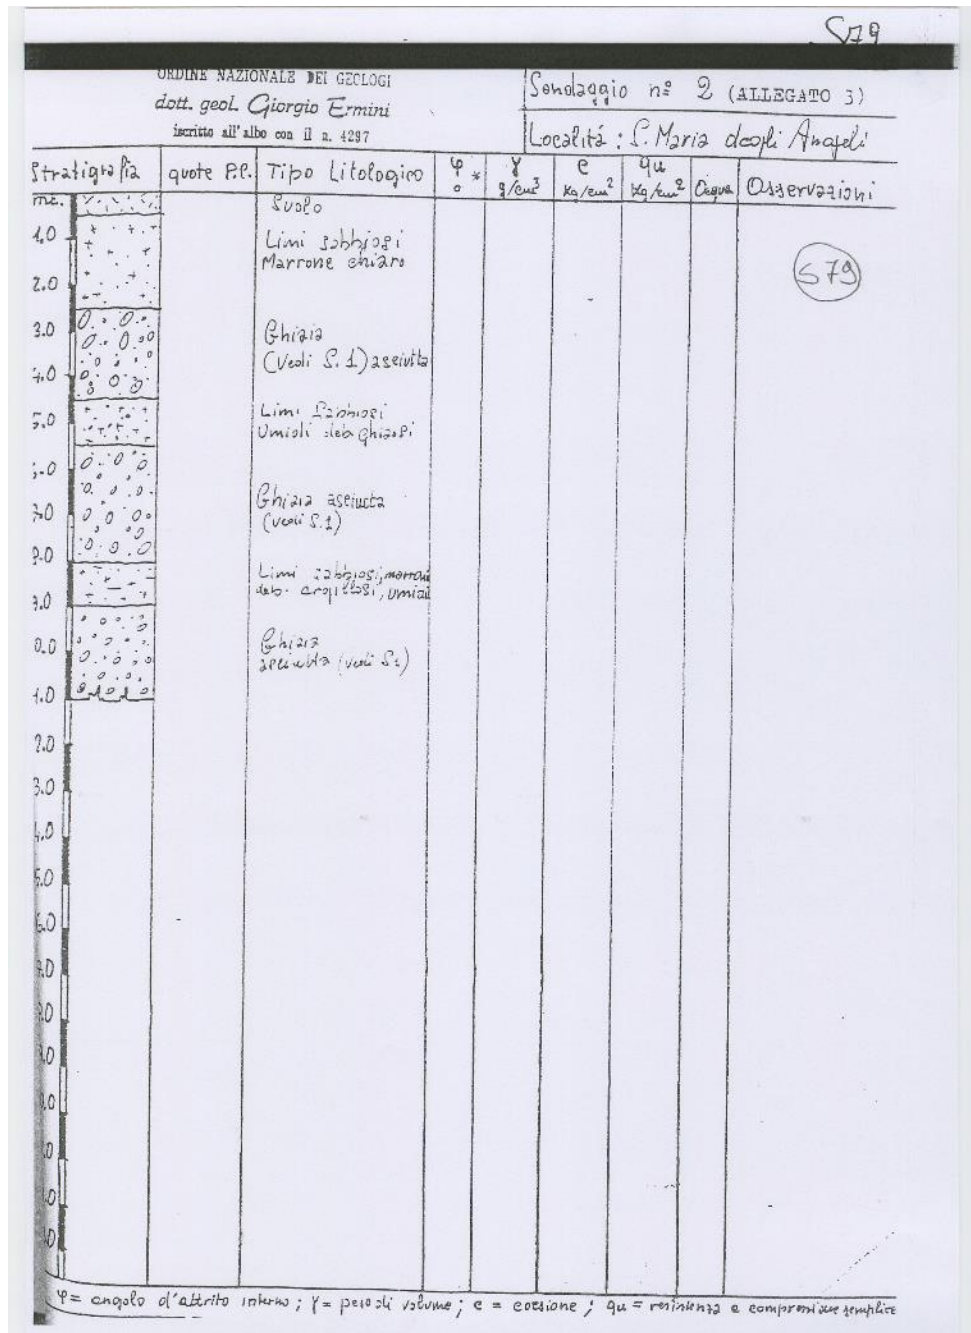 S79
ORDINE NAZIONALE DEI GEOLOGI
dott. geol. Giorgio Ermini
iscritto all'albo con il n. 4297
Sondaggio n= 2 (ALLEGATO 3)
Località : S. Maria degli Angeli
Stratigrafia quote P.C. Tipo Litologico φ ° * γ g/cm³ c Kg/cm² qu Kg/cm² Acqua Osservazioni
mt. Suolo
1.0 Limi sabbiosi
Marrone chiaro
2.0 S79
3.0 Ghiaia
(Vedi S.1) asciutta
4.0
Limi sabbiosi
5.0 Umidi deb. ghiaiosi
.0
Ghiaia asciutta
.0 (vedi S.1)
.0
Limi sabbiosi, marroni
deb. argillosi, umidi
.0
0.0 Ghiaia
asciutta (vedi S1)
1.0
2.0
3.0
4.0
5.0
6.0
.0
.0
.0
.0
.0
.0
.0
φ = angolo d'attrito interno ; γ = peso di volume ; c = coesione ; qu = resistenza a compressione semplice